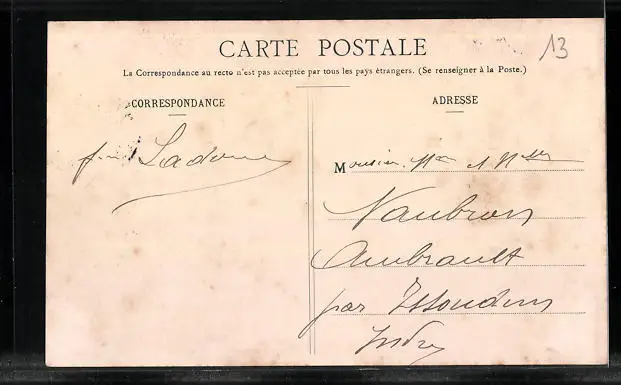 CARTE POSTALE
La Correspondance au recto n'est pas acceptée par tous les pays étrangers. (Se renseigner à la Poste.)
13
CORRESPONDANCE
ADRESSE
Monsieur, Mme & Melles
Naubron
Ambrault
par Issoudun
Indre